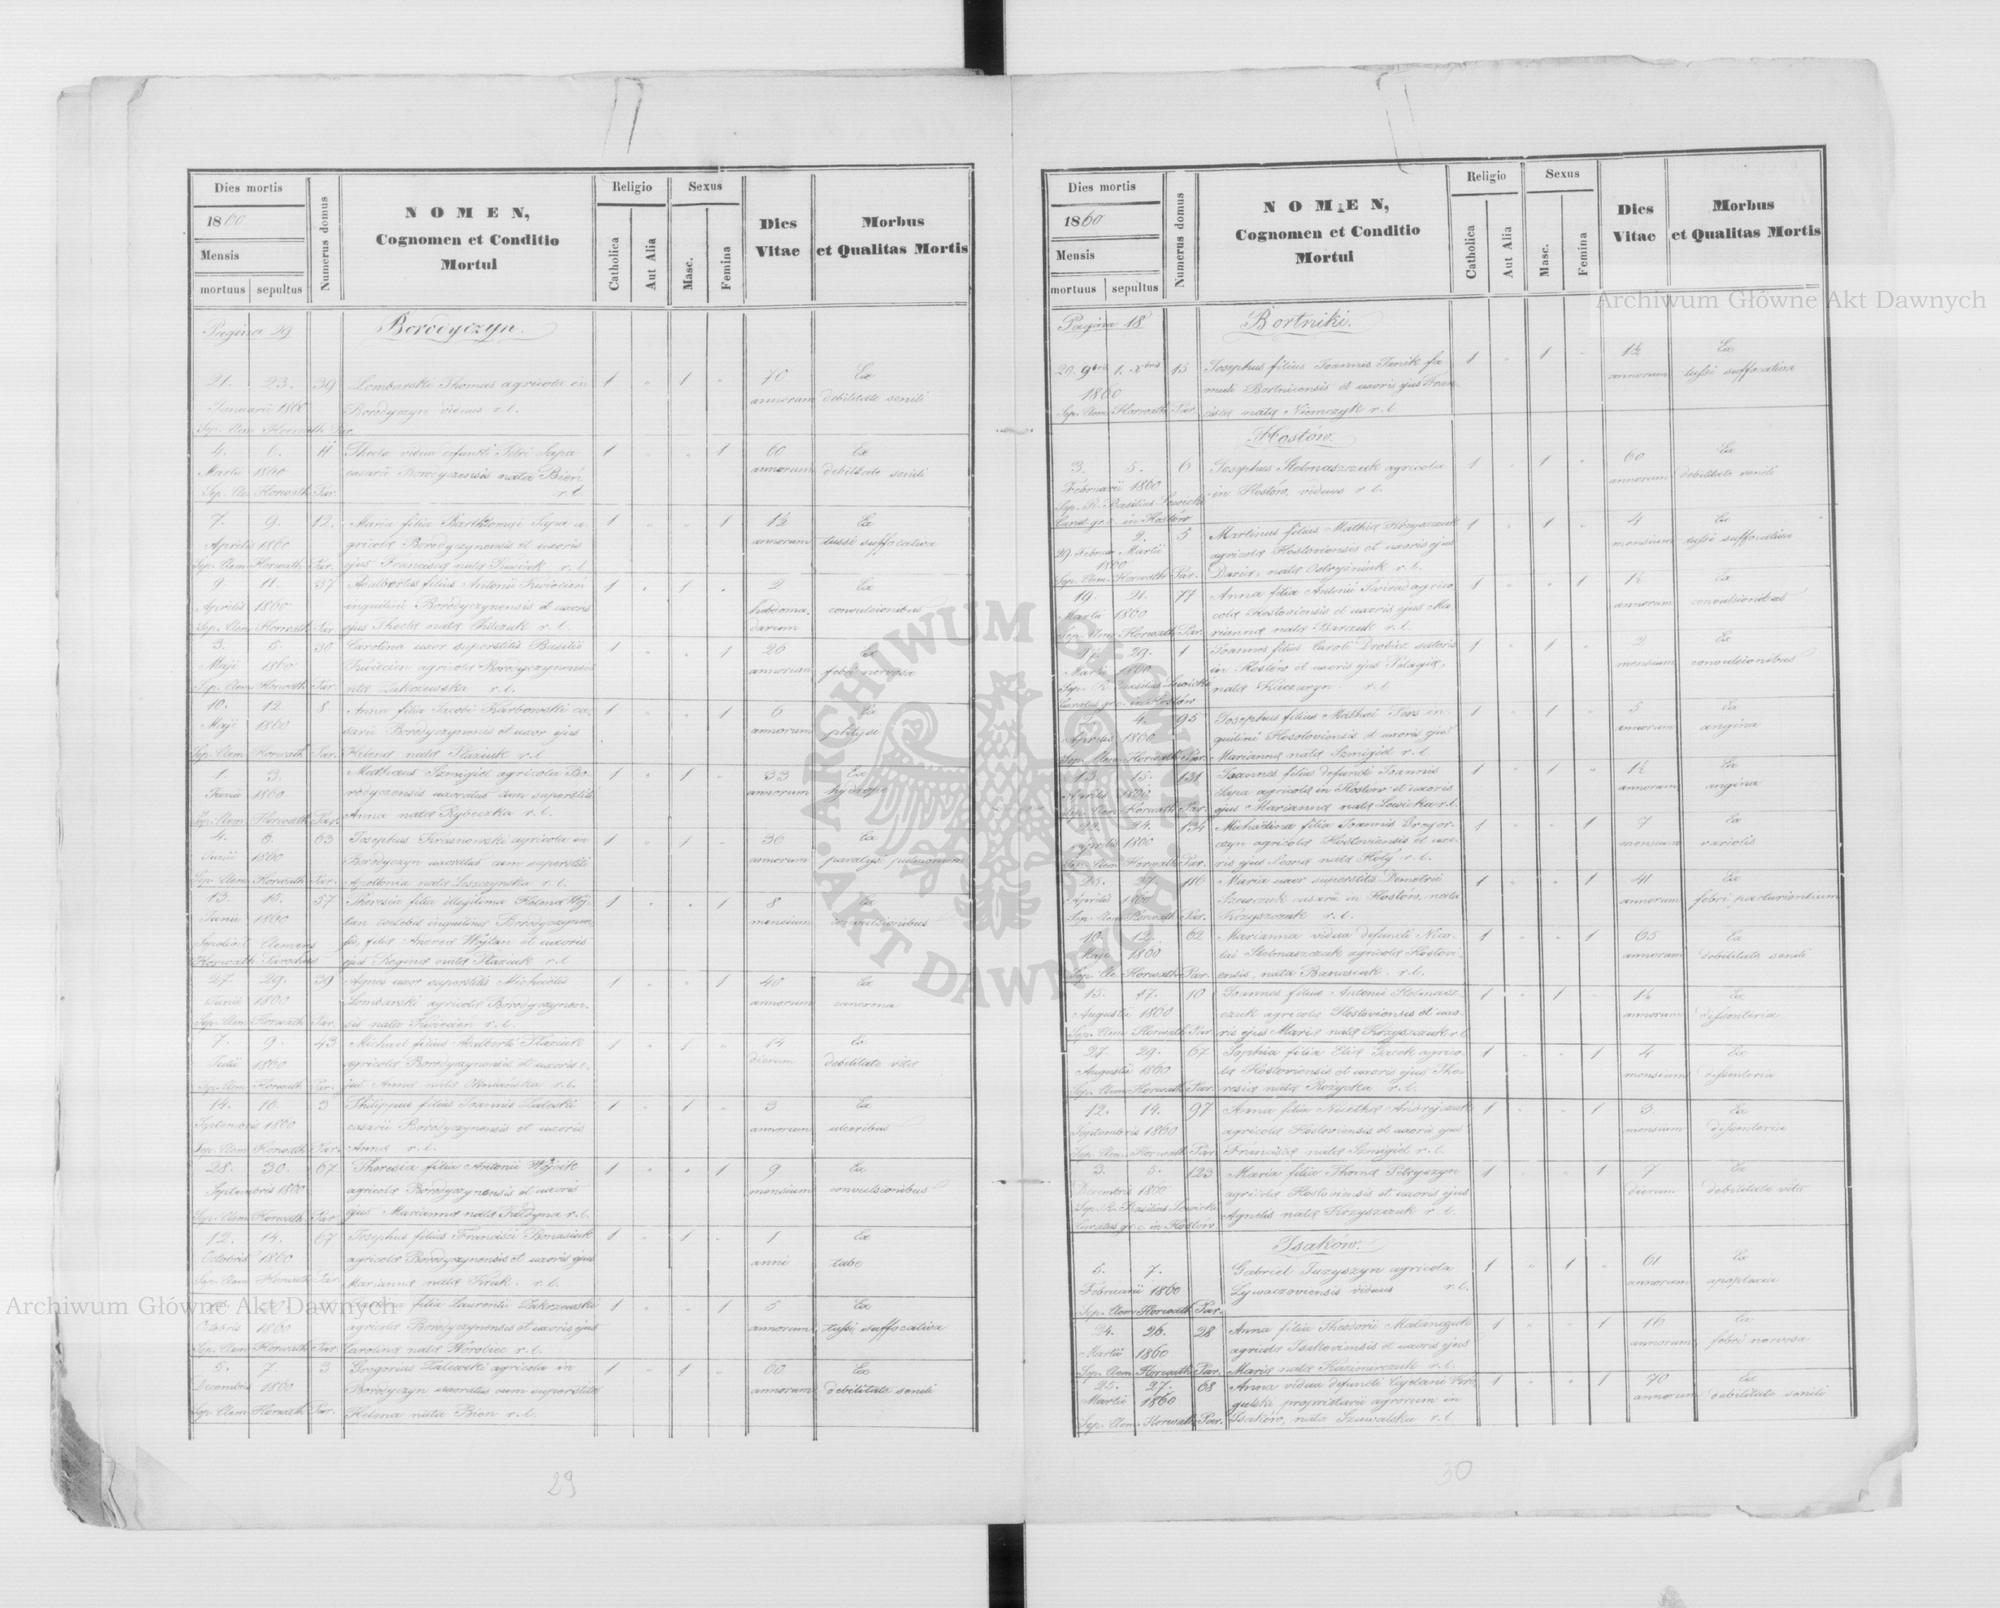 Dies mortis
1860
Mensis
mortuus sepultus
Numerus domus
NOMEN,
Cognomen et Conditio
Mortui
Religio
Catholica
Aut Alia
Sexus
Masc.
Femina
Dies
Vitae
Morbus
et Qualitas Mortis
Pagina 29 Borodyczyn.
21. 23. 39 Lombarski Thomas agricola in 1 1 70 Ex
Januarii 1860 Borodyczyn viduus r. l. annorum debilitate senili
Sep. Clem. Horwath Par.
4. 6. 11 Thecla vidua defuncti Petri Sapa 1 1 60 Ex
Martii 1860 casarii Borodyczensis nata Bień annorum debilitate senili
Sep. Cle. Horwath Par. r. l.
7. 9. 12. Maria filia Bartholomaei Sapa a- 1 1 1½ Ex
Aprilis 1860 gricolae Borodyczynensis et uxoris annorum tussi suffocativa
Sep. Clem. Horwath Par. ejus Franciscae natae r. l.
9. 11. 37 Adalbertus filius Antonii Kwiecień 1 1 2 Ex
Aprilis 1860 inquilini Borodyczynensis et uxoris hebdoma- convulsionibus
Sep. Clem. Horwath Par. ejus Theclae natae r. l. darum
3. 5. 30 Carolina uxor superstitis Basilii 1 1 26 Ex
Maji 1860 Kwiecień agricolae Borodyczynensis annorum febri nervosa
Sep. Clem. Horwath Par. nata Zakrzewska r. l.
10. 12. 8. Anna filia Jacobi Karbowski ca- 1 1 6 Ex
Maji 1860 sarii Borodyczynensis et uxor ejus annorum phtysi
Sep. Clem. Horwath Par. Helenae natae Staziuk r. l.
1. 3. Mathaeus Szmigiel agricola Bo- 1 1 33 Ex
Junii 1860 rodyczensis uxoratus cum superstite annorum hydrope
Sep. Clem. Horwath Par. Anna nata Rybiczka r. l.
4. 6. 63 Josephus Krasnowski agricola in 1 1 36 Ex
Junii 1860 Borodyczyn uxoratus cum superstite annorum paralysi pulmonum
Sep. Clem. Horwath Par. Apollonia nata Leszczynska r. l.
13. 15. 57 Theresia filia illegitima Helenae Woj- 1 1 8 Ex
Junii 1860 tan coelebis inquilinae Borodyczynen- mensium convulsionibus
Sepelivit Clemens sis, filiae Andreae Wojtan et uxoris
Horwath Parochus ejus Reginae natae Staziuk r. l.
27. 29. 39 Agnes uxor superstitis Michaelis 1 1 40 Ex
Junii 1860 Lombarski agricolae Borodyczynen- annorum
Sep. Clem. Horwath Par. sis nata Kwiecień r. l.
7. 9. 43 Michael filius Adalberti Staziuk 1 1 14 Ex
Julii 1860 agricolae Borodyczynensis et uxoris e- dierum debilitate vitae
Sep. Clem. Horwath Par. jus Annae natae r. l.
14. 16. 3 Philippus filius Joannis Zaleski 1 1 3 Ex
Septembris 1860 casarii Borodyczynensis et uxoris annorum ulceribus
Sep. Clem. Horwath Par. Annae r. l.
28. 30. 67 Theresia filia Antonii Wojcik 1 1 9 Ex
Septembris 1860 agricolae Borodyczynensis et uxoris mensium convulsionibus
Sep. Clem. Horwath Par. ejus Mariannae natae r. l.
12. 14. 67 Josephus filius Francisci Banasiuk 1 1 1 Ex
Octobris 1860 agricolae Borodyczynensis et uxoris ejus anni tabe
Sep. Clem. Horwath Par. Mariannae natae Kruk. r. l.
filia Laurentii Zakrzewski 1 1 5 Ex
Octobris 1860 agricolae Borodyczynensis et uxoris ejus annorum tussi suffocativa
Sep. Clem. Horwath Par. Carolinae natae r. l.
5. 7. 3 Gregorius Zalewski agricola in 1 1 60 Ex
Decembris 1860 Borodyczyn uxoratus cum superstite annorum debilitate senili
Sep. Clem. Horwath Par. Helena nata Bien r. l.
29
Dies mortis
1860
Mensis
mortuus sepultus
Numerus domus
NOMEN,
Cognomen et Conditio
Mortui
Religio
Catholica
Aut Alia
Sexus
Masc.
Femina
Dies
Vitae
Morbus
et Qualitas Mortis
Pagina 18 Bortniki.
29. 9bris 1. Xbris 15 Josephus filius Joannis fa- 1 1 1½ Ex
1860 muli Bortnicensis et uxoris ejus Fran- annorum tussi suffocativa
Sep. Clem. Horwath Par. ciscae natae Niemczyk r. l.
Hostów.
3. 5. 6 Josephus Stelmaszczuk agricola 1 1 60 Ex
Februarii 1860 in Hostów, viduus r. l. annorum debilitate senili
Sep. R. Basilius Lewicki
Curat. gr. c. in Hostów
2. 5 Martinus filius Mathiae Krzyszczuk 1 1 4 Ex
29. Februar. Martii agricolae Hostoviensis et uxoris ejus mensium tussi suffocativa
1860
Sep. Clem. Horwath Par. Dariae, natae r. l.
19. 21. 77 Anna filia Antonii agrico- 1 1 1½ Ex
Martii 1860 colae Hostoviensis et uxoris ejus Ma- annorum convulsionibus
Sep. Clem. Horwath Par. riannae natae Barczuk r. l.
29. 1 Joannes filius Caroli Drobicz sutoris 1 1 2 Ex
Martii 1860 in Hostów et uxoris ejus Pelagiae, mensium convulsionibus
Sep. R. Basilius Lewicki natae r. l.
Curatus gr. c. in Hostów
4. 95 Josephus filius Mathei in- 1 1 5 Ex
Aprilis 1860 quilini Hostoviensis et uxoris ejus annorum angina
Sep. Clem. Horwath Par. Mariannae natae Szmigiel r. l.
13. 15. 131 Joannes filius defuncti Joannis 1 1 1½ Ex
Aprilis 1860 agricolae in Hostów et uxoris annorum angina
Sep. Clem. Horwath Par. ejus Mariannae natae Lewicka r. l.
24. 134 Michalina filia Joannis Gregor- 1 1 7 Ex
Aprilis 1860 czyn agricolae Hostoviensis et uxo- mensium variolis
Sep. Clem. Horwath Par. ris ejus natae Hoły r. l.
25. 27. 116 Maria uxor superstitis Demetrii 1 1 41 Ex
Aprilis 1860 Szewczuk casarii in Hostów, nata annorum febri parturientium
Sep. Clem. Horwath Par. Krzyszczuk r. l.
10. 12. 62 Marianna vidua defuncti Nico- 1 1 65 Ex
Maji 1860 lai Stelmaszczuk agricolae Hostovi- annorum debilitate senili
Sep. Cle. Horwath Par. ensis, nata Banasiuk. r. l.
15. 17. 10 Joannes filius Antonii Stelmasz- 1 1 1½ Ex
Augusti 1860 czuk agricolae Hostoviensis et uxo- annorum dissenteria
Sep. Clem. Horwath Par. ris ejus Mariae natae Krzyszczuk r. l.
27. 29. 67 Sophia filia Eliae agrico- 1 1 4 Ex
Augusti 1860 lae Hostoviensis et uxoris ejus The- mensium dissenteria
Sep. Clem. Horwath Par. resiae natae Rożycka r. l.
12. 14. 97 Anna filia Nicetae Andrejczuk 1 1 3. Ex
Septembris 1860 agricolae Hostoviensis et uxoris ejus mensium dissenteria
Sep. Clem. Horwath Par. Franciscae natae Szmigiel r. l.
3. 5. 123 Maria filia Thomae Petryszyn 1 1 7 Ex
Decembris 1860 agricolae Hostoviensis et uxoris ejus dierum debilitate vitae
Sep. R. Basilius Lewicki Agnetis natae Krzyszczuk r. l.
Curatus gr. c. in Hostów
Isaków.
5. 7. Gabriel Juzyszyn agricola 1 1 61 Ex
Februarii 1860 viduus r. l. annorum apoplexia
Sep. Clem. Horwath Par.
24. 26. 28 Anna filia Theodorii Matanczuk 1 1 16 Ex
Martii 1860 agricolae Isakoviensis et uxoris ejus annorum febri nervosa
Sep. Clem. Horwath Par. Mariae natae Kazimirczuk r. l.
25. 27. 68 Anna vidua defuncti Cajetani 1 1 70 Ex
Martii 1860 proprietarii agrorum in annorum debilitate senili
Sep. Clem. Horwath Par. Isaków, nata Szuwalska r. l.
30
Archiwum Główne Akt Dawnych
Archiwum Główne Akt Dawnych
ARCHIWUM GŁÓWNE
AKT DAWNYCH